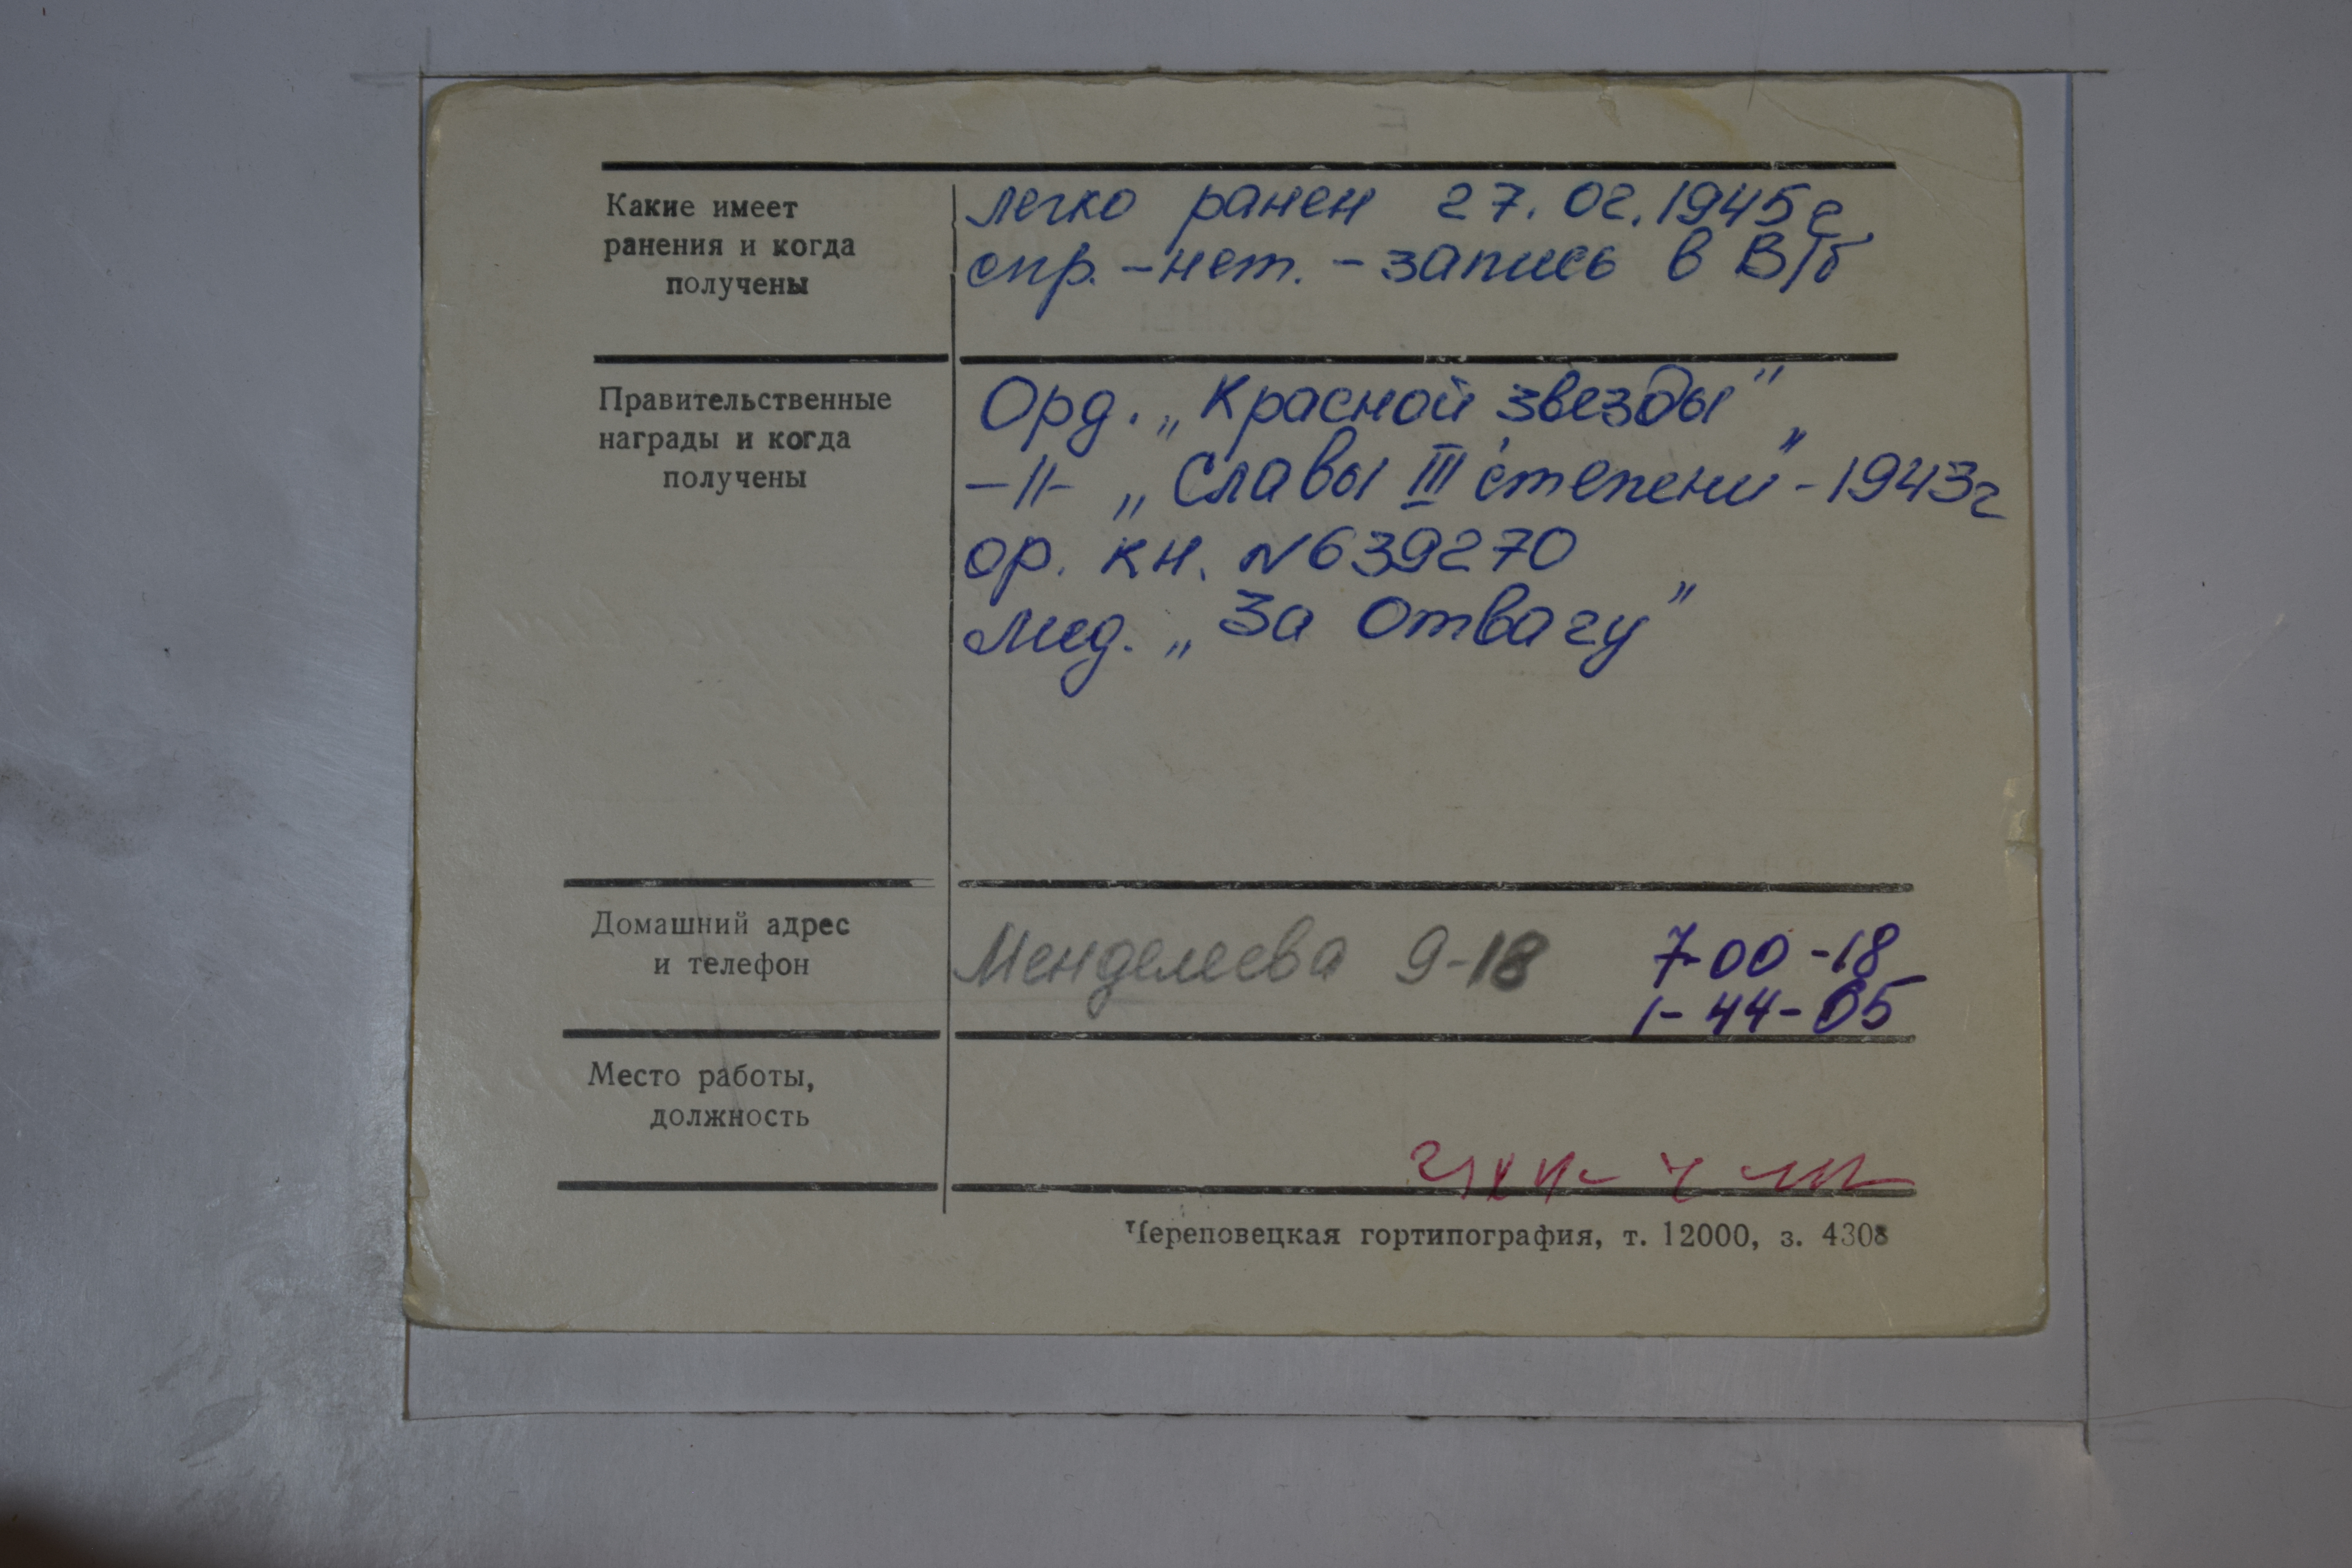 Какие имеет
ранения и когда
получены
легко ранен 27.02.1945г
спр. - нет. - запись в В/б
Правительственные
награды и когда
получены
Орд. „Красной звезды",
-//- „Славы III степени" - 1943г
ор. кн. N639270
мед. „За Отвагу"
Домашний адрес
и телефон
Менделеева 9-18
7-00-18
1-44-05
Место работы,
должность
Череповецкая гортипография, т. 12000, з. 4308